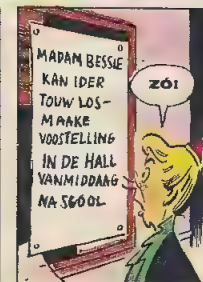 MADAM BESSIE
KAN IDER
TOUW LOS-
MAAKE
VOOSTELLING
IN DE HALL
VANMIDDAAG
NA SGOOL
ZÓ!